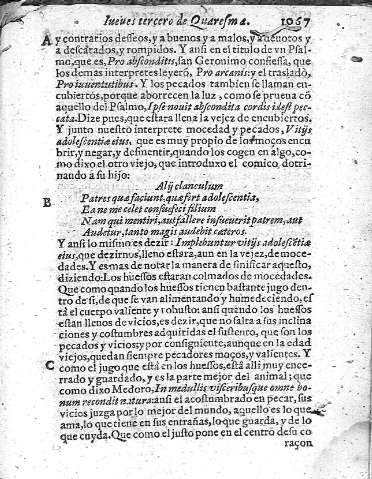 Iueues tercero de Quaresma. 1067
A y contrarios desseos, y a buenos y a malos, y a deuotos y
a descatados, y rompidos. Y ansi en el titulo de vn Psal-
mo, que es, Pro absconditis, san Geronimo confiessa, que
los demas interpretes leyerõ, Pro arcanis: y el trasladò,
Pro iuuentutibus. Y los pecados tambien se llaman en-
cubiertos, porque aborrecen la luz, como se prueua cõ
aquello del Psalmo, Ipse nouit abscondita cordis idest pec-
cata. Dize pues, que estara llena la vejez de encubiertos.
Y junto nuestro interprete mocedad y pecados, Vitijs
adolescentiæ eius, que es muy propio de los moços encu
brir, y negar, y desmentir, quando los cogen en algo, co-
mo dixo el otro viejo, que introduxo el comico, dotri-
nando à su hijo:
Alij clanculum
B Patres quæ faciunt, quæ fert adolescentia,
Ea ne me celet consuefeci filium
Nam qui mentiri, aut fallere insueuerit patrem, aut
Audetur, tanto magis audebit cæteros.
Y ansi lo mismo es dezir: Implebuntur vitijs adolescẽtiæ
eius, que dezirnos, lleno estarà, aun en la vejez, de moce-
dades. Y es mas de notar la manera de sinificar aquesto,
diziendo: Los huessos estaran colmados de mocedades.
Que como quando los huessos tienen bastante jugo den-
tro de si, de que se van alimentando y humedeciendo, es-
tà el cuerpo valiente y robusto: ansi quando los huessos
estan llenos de vicios, es dezir, que no falta a sus inclina
ciones y costumbres adquiridas el sustento, que son los
pecados y vicios; y por consiguiente, aunque en la edad
viejos, quedan siempre pecadores moços, y valientes. Y
C como el jugo que està en los huessos, està alli muy ence-
rrado y guardado, y es la parte mejor del animal; que
como dixo Medoro, In medullis visceribusque omne bo-
num recondit natura: ansi el acostumbrado en pecar, sus
vicios juzga por lo mejor del mundo, aquello es lo que
ama, lo que tiene en sus entrañas, lo que guarda, y de lo
que cuyda. Que como el justo pone en el centro de su co
raçon